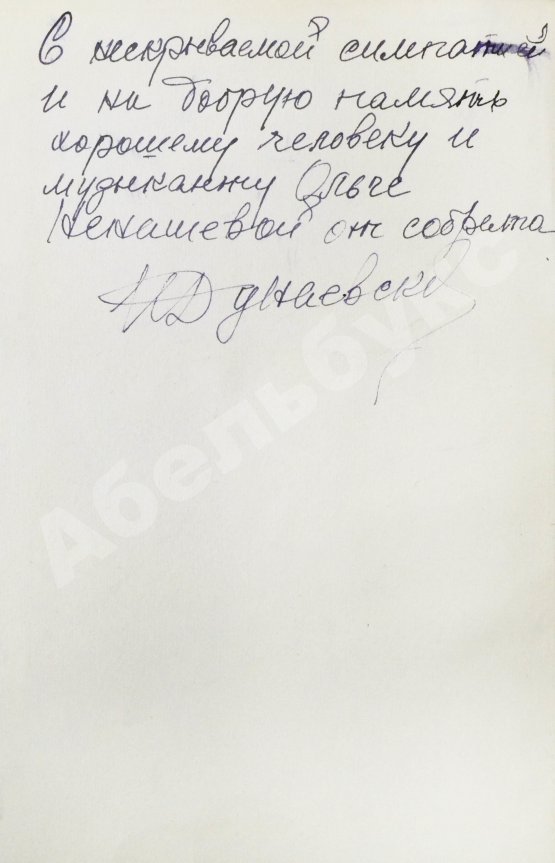 С нескрываемой симпатией
и на добрую память
хорошему человеку и
музыканту Ольге
Ненашевой от собрата
И Дунаевский
Абельбукс